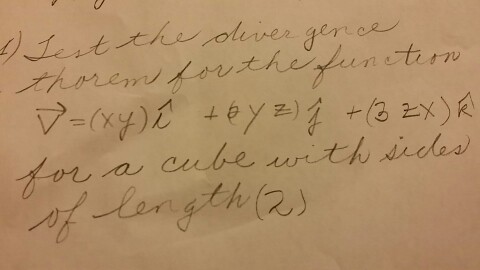 1) Test the divergence
thorem for the function
V⃗ = (xy) î + (2yz) ĵ + (3zx) k̂
for a cube with sides
of length (2)